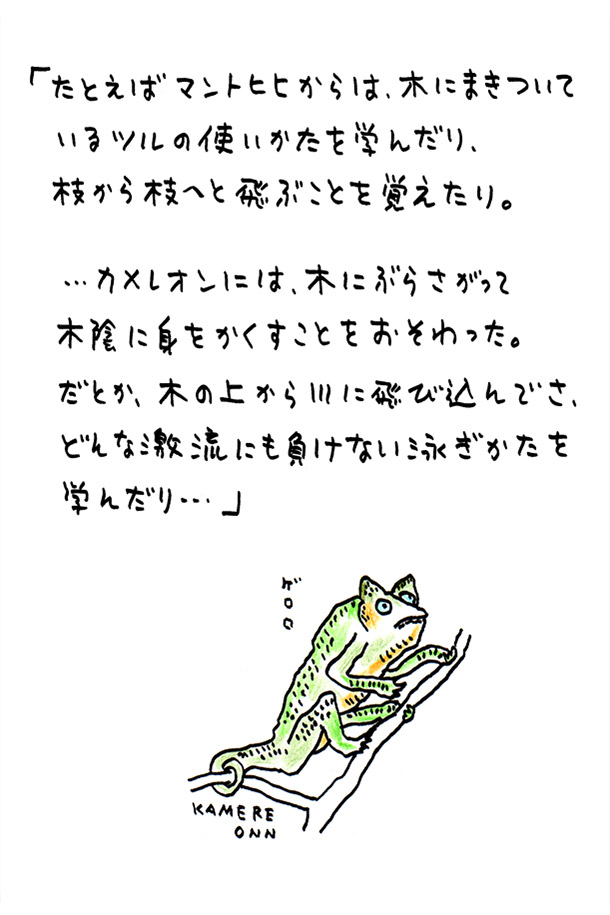 「たとえばマントヒヒからは、木にまきついて
いるツルの使いかたを学んだり、
枝から枝へと飛ぶことを覚えたり。
…カメレオンには、木にぶらさがって
木陰に身をかくすことをおそわった。
だとか、木の上から川に飛び込んでさ、
どんな激流にも負けない泳ぎかたを
学んだり…」
ゲロロ
KAMERE
ONN